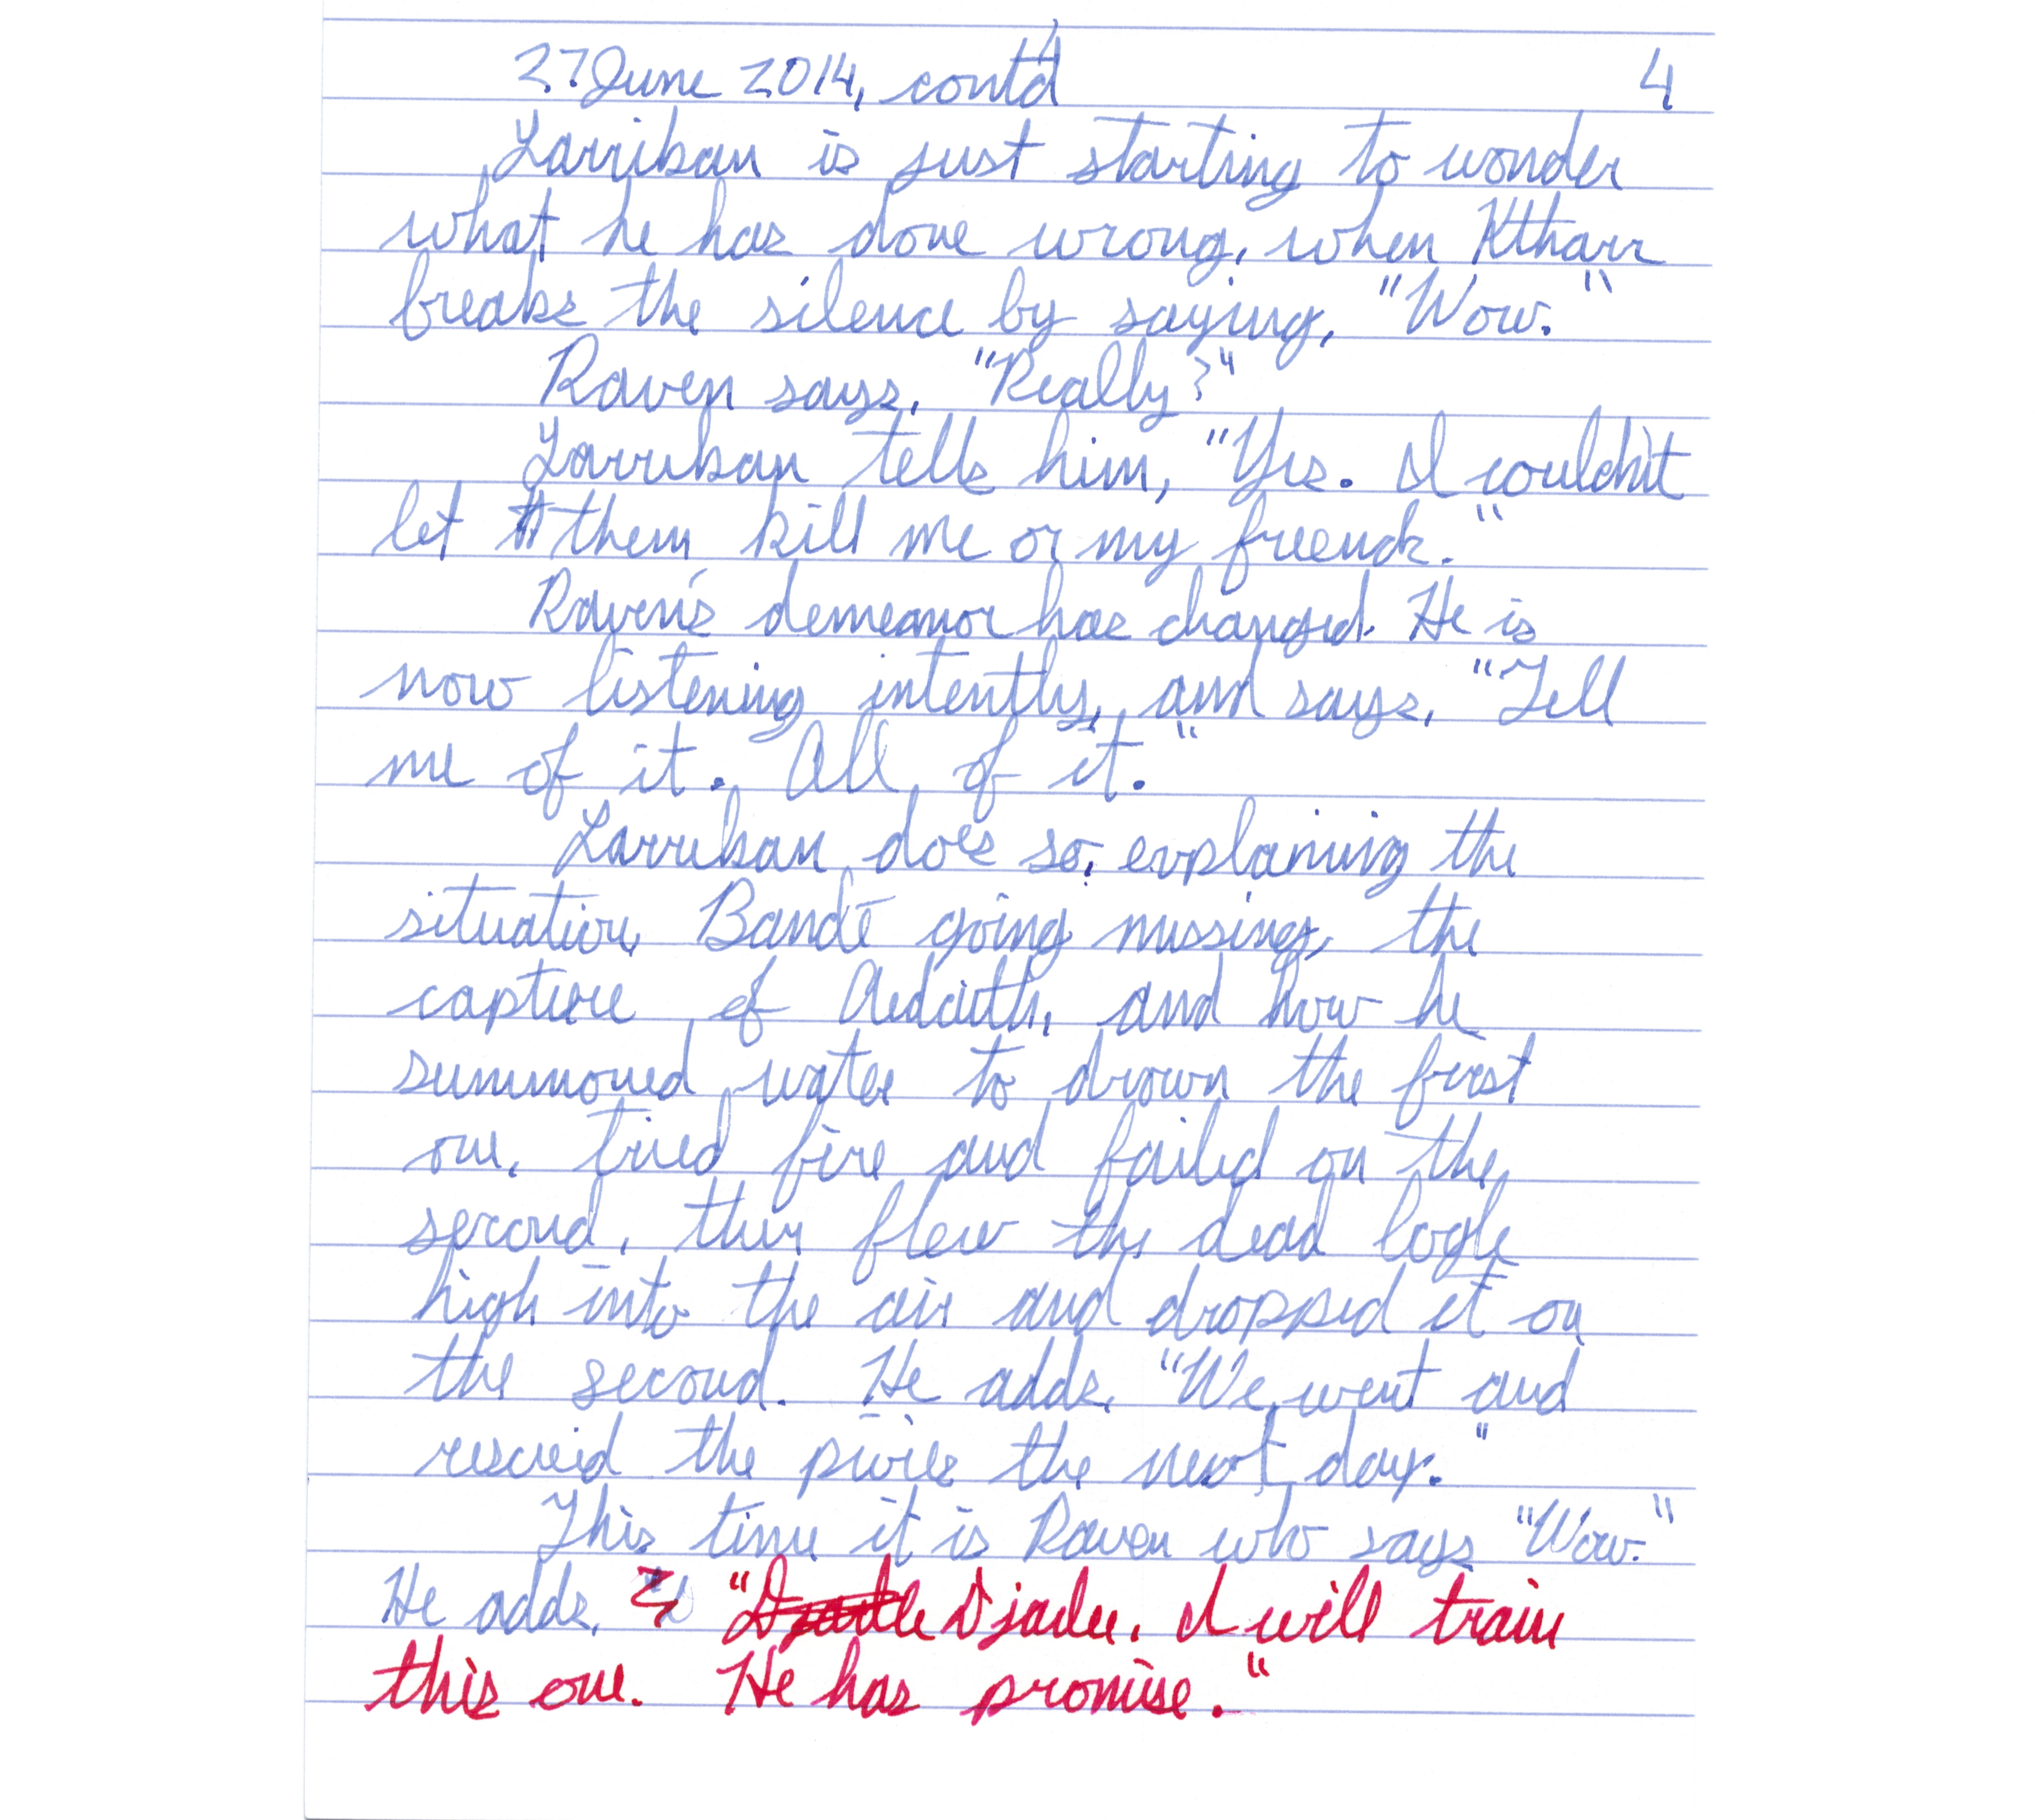 27 June 2014, cont'd 4
Larriban is just starting to wonder
what he has done wrong, when Ktharr
breaks the silence by saying, "Wow."
Raven says, "Really?"
Larriban tells him, "Yes. I couldn't
let them kill me or my friends."
Raven's demeanor has changed. He is
now listening intently, and says, "Tell
me of it. All of it."
Larriban does so, explaining the
situation, Bandé going missing, the
capture of and how he
summoned water to drown the first
one, tried fire and failed on the
second, then flew the dead
high into the air and dropped it on
the second. He adds, "We went and
rescued the pixies the next day."
This time it is Raven who says "Wow."
He adds, " I will train
this one. He has promise."